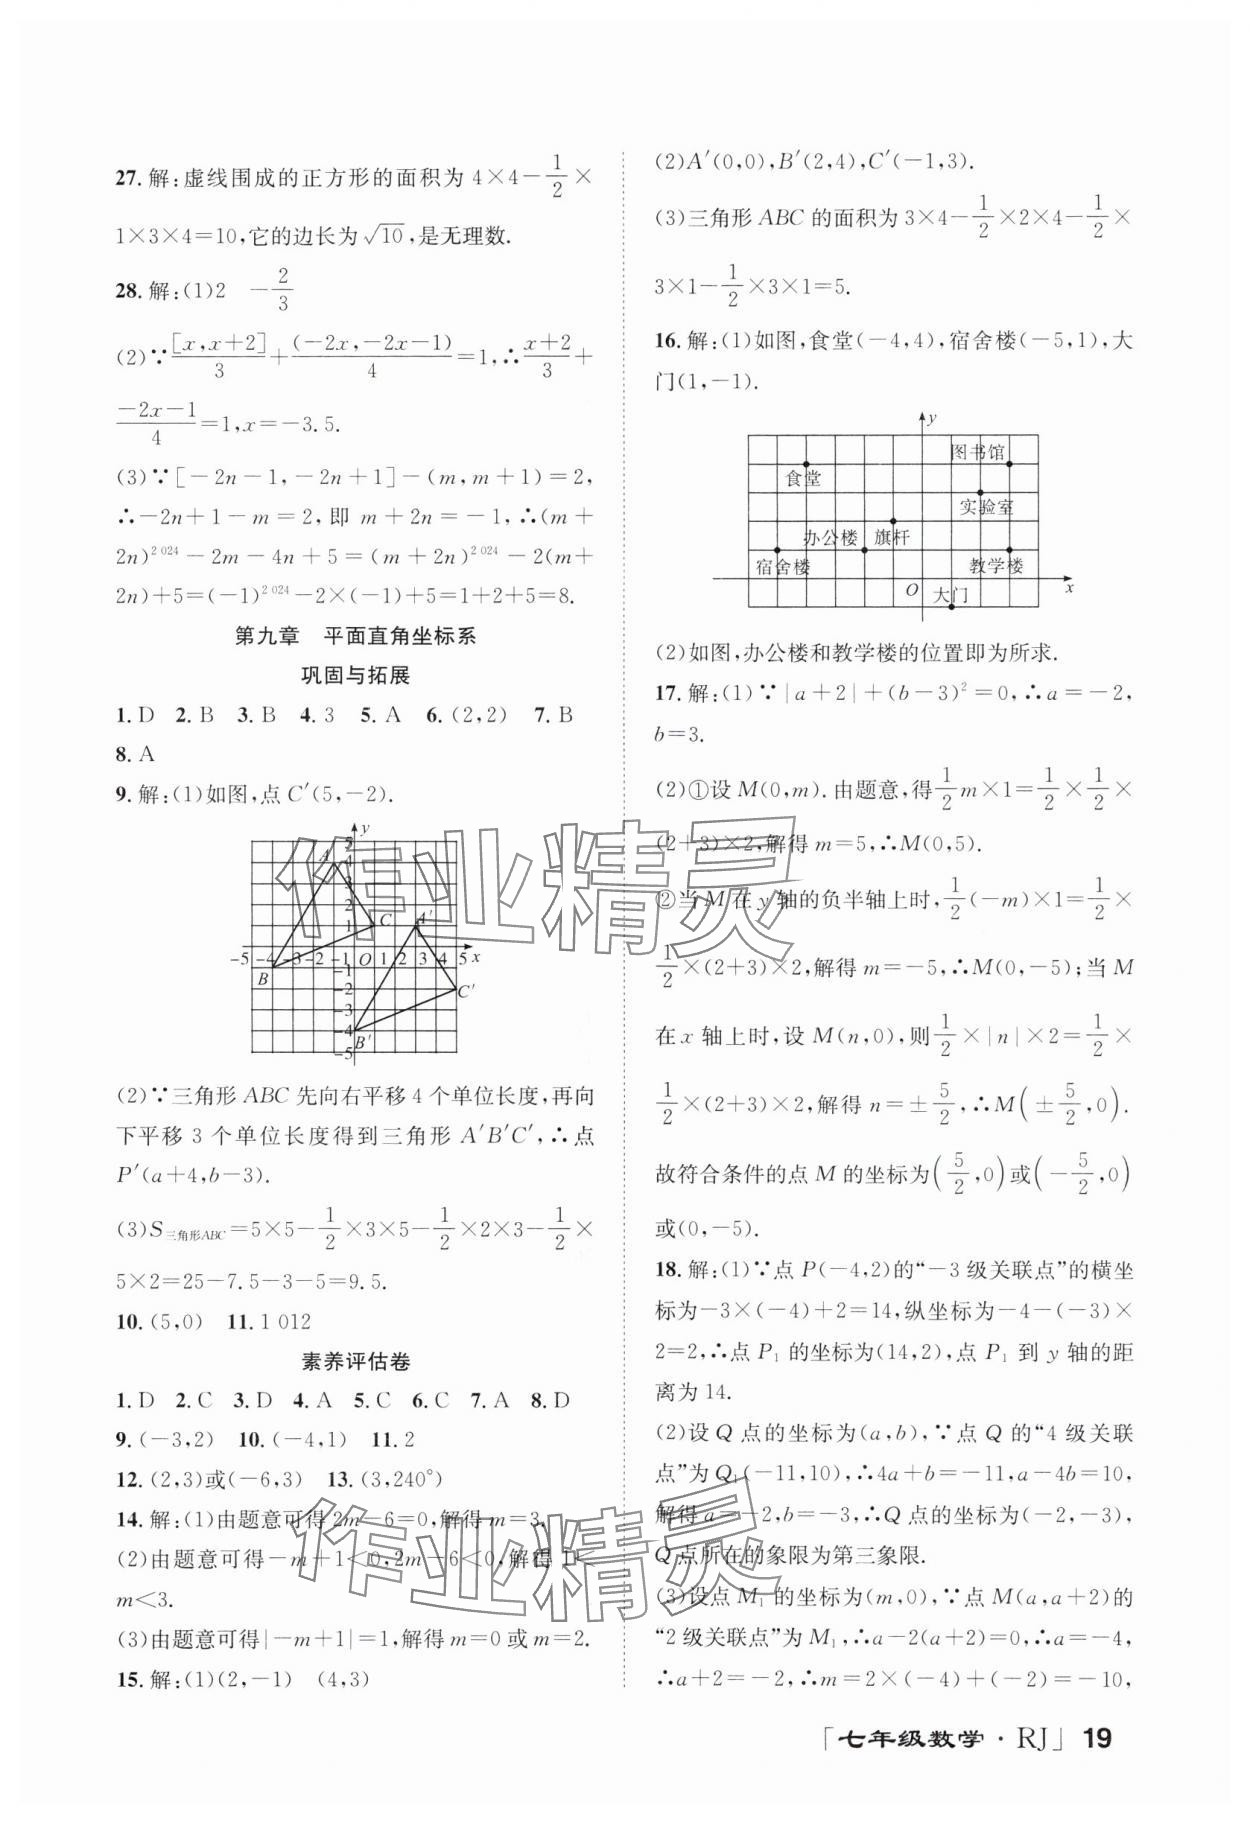 27. 解:虚线围成的正方形的面积为 4×4－1/2×
1×3×4＝10,它的边长为√10,是无理数.
28. 解:(1)2　－2/3
(2)∵[x,x＋2]/3＋(－2x,－2x－1)/4＝1,∴(x＋2)/3＋
(－2x－1)/4＝1,x＝－3.5.
(3)∵[－2n－1,－2n＋1]－(m,m＋1)＝2,
∴－2n＋1－m＝2,即 m＋2n＝－1,∴(m＋
2n)^2 024－2m－4n＋5＝(m＋2n)^2 024－2(m＋
2n)＋5＝(－1)^2 024－2×(－1)＋5＝1＋2＋5＝8.
第九章　平面直角坐标系
巩固与拓展
1. D　2. B　3. B　4. 3　5. A　6. (2,2)　7. B
8. A
9. 解:(1)如图,点 C′(5,－2).
y
5
A 4
3
2
1 C A′
－5 －4 －3 －2 －1 O 1 2 3 4 5 x
B －1
－2 C′
－3
－4 B′
－5
(2)∵三角形 ABC 先向右平移 4 个单位长度,再向
下平移 3 个单位长度得到三角形 A′B′C′,∴点
P′(a＋4,b－3).
(3)S三角形ABC＝5×5－1/2×3×5－1/2×2×3－1/2×
5×2＝25－7.5－3－5＝9.5.
10. (5,0)　11. 1 012
素养评估卷
1. D　2. C　3. D　4. A　5. C　6. C　7. A　8. D
9. (－3,2)　10. (－4,1)　11. 2
12. (2,3)或(－6,3)　13. (3,240°)
14. 解:(1)由题意可得 2m－6＝0,解得 m＝3.
(2)由题意可得－m＋1＜0,2m－6＜0,解得 1＜
m＜3.
(3)由题意可得|－m＋1|＝1,解得 m＝0 或 m＝2.
15. 解:(1)(2,－1)　(4,3)
(2)A′(0,0),B′(2,4),C′(－1,3).
(3)三角形 ABC 的面积为 3×4－1/2×2×4－1/2×
3×1－1/2×3×1＝5.
16. 解:(1)如图,食堂(－4,4),宿舍楼(－5,1),大
门(1,－1).
y
图书馆
食堂
实验室
办公楼 旗杆
宿舍楼 教学楼
O 大门 x
(2)如图,办公楼和教学楼的位置即为所求.
17. 解:(1)∵|a＋2|＋(b－3)²＝0,∴a＝－2,
b＝3.
(2)①设 M(0,m).由题意,得1/2m×1＝1/2×1/2×
(2＋3)×2,解得 m＝5,∴M(0,5).
②当 M 在 y 轴的负半轴上时,1/2(－m)×1＝1/2×
1/2×(2＋3)×2,解得 m＝－5,∴M(0,－5);当 M
在 x 轴上时,设 M(n,0),则1/2×|n|×2＝1/2×
1/2×(2＋3)×2,解得 n＝±5/2,∴M(±5/2,0).
故符合条件的点 M 的坐标为(5/2,0)或(－5/2,0)
或(0,－5).
18. 解:(1)∵点 P(－4,2)的“－3 级关联点”的横坐
标为－3×(－4)＋2＝14,纵坐标为－4－(－3)×
2＝2,∴点 P₁ 的坐标为(14,2),点 P₁ 到 y 轴的距
离为 14.
(2)设 Q 点的坐标为(a,b),∵点 Q 的“4 级关联
点”为 Q₁(－11,10),∴4a＋b＝－11,a－4b＝10,
解得 a＝－2,b＝－3,∴Q 点的坐标为(－2,－3),
Q 点所在的象限为第三象限.
(3)设点 M₁ 的坐标为(m,0),∵点 M(a,a＋2)的
“2 级关联点”为 M₁,∴a－2(a＋2)＝0,∴a＝－4,
∴a＋2＝－2,∴m＝2×(－4)＋(－2)＝－10,
「七年级数学·RJ」 19
作业精灵
作业精灵